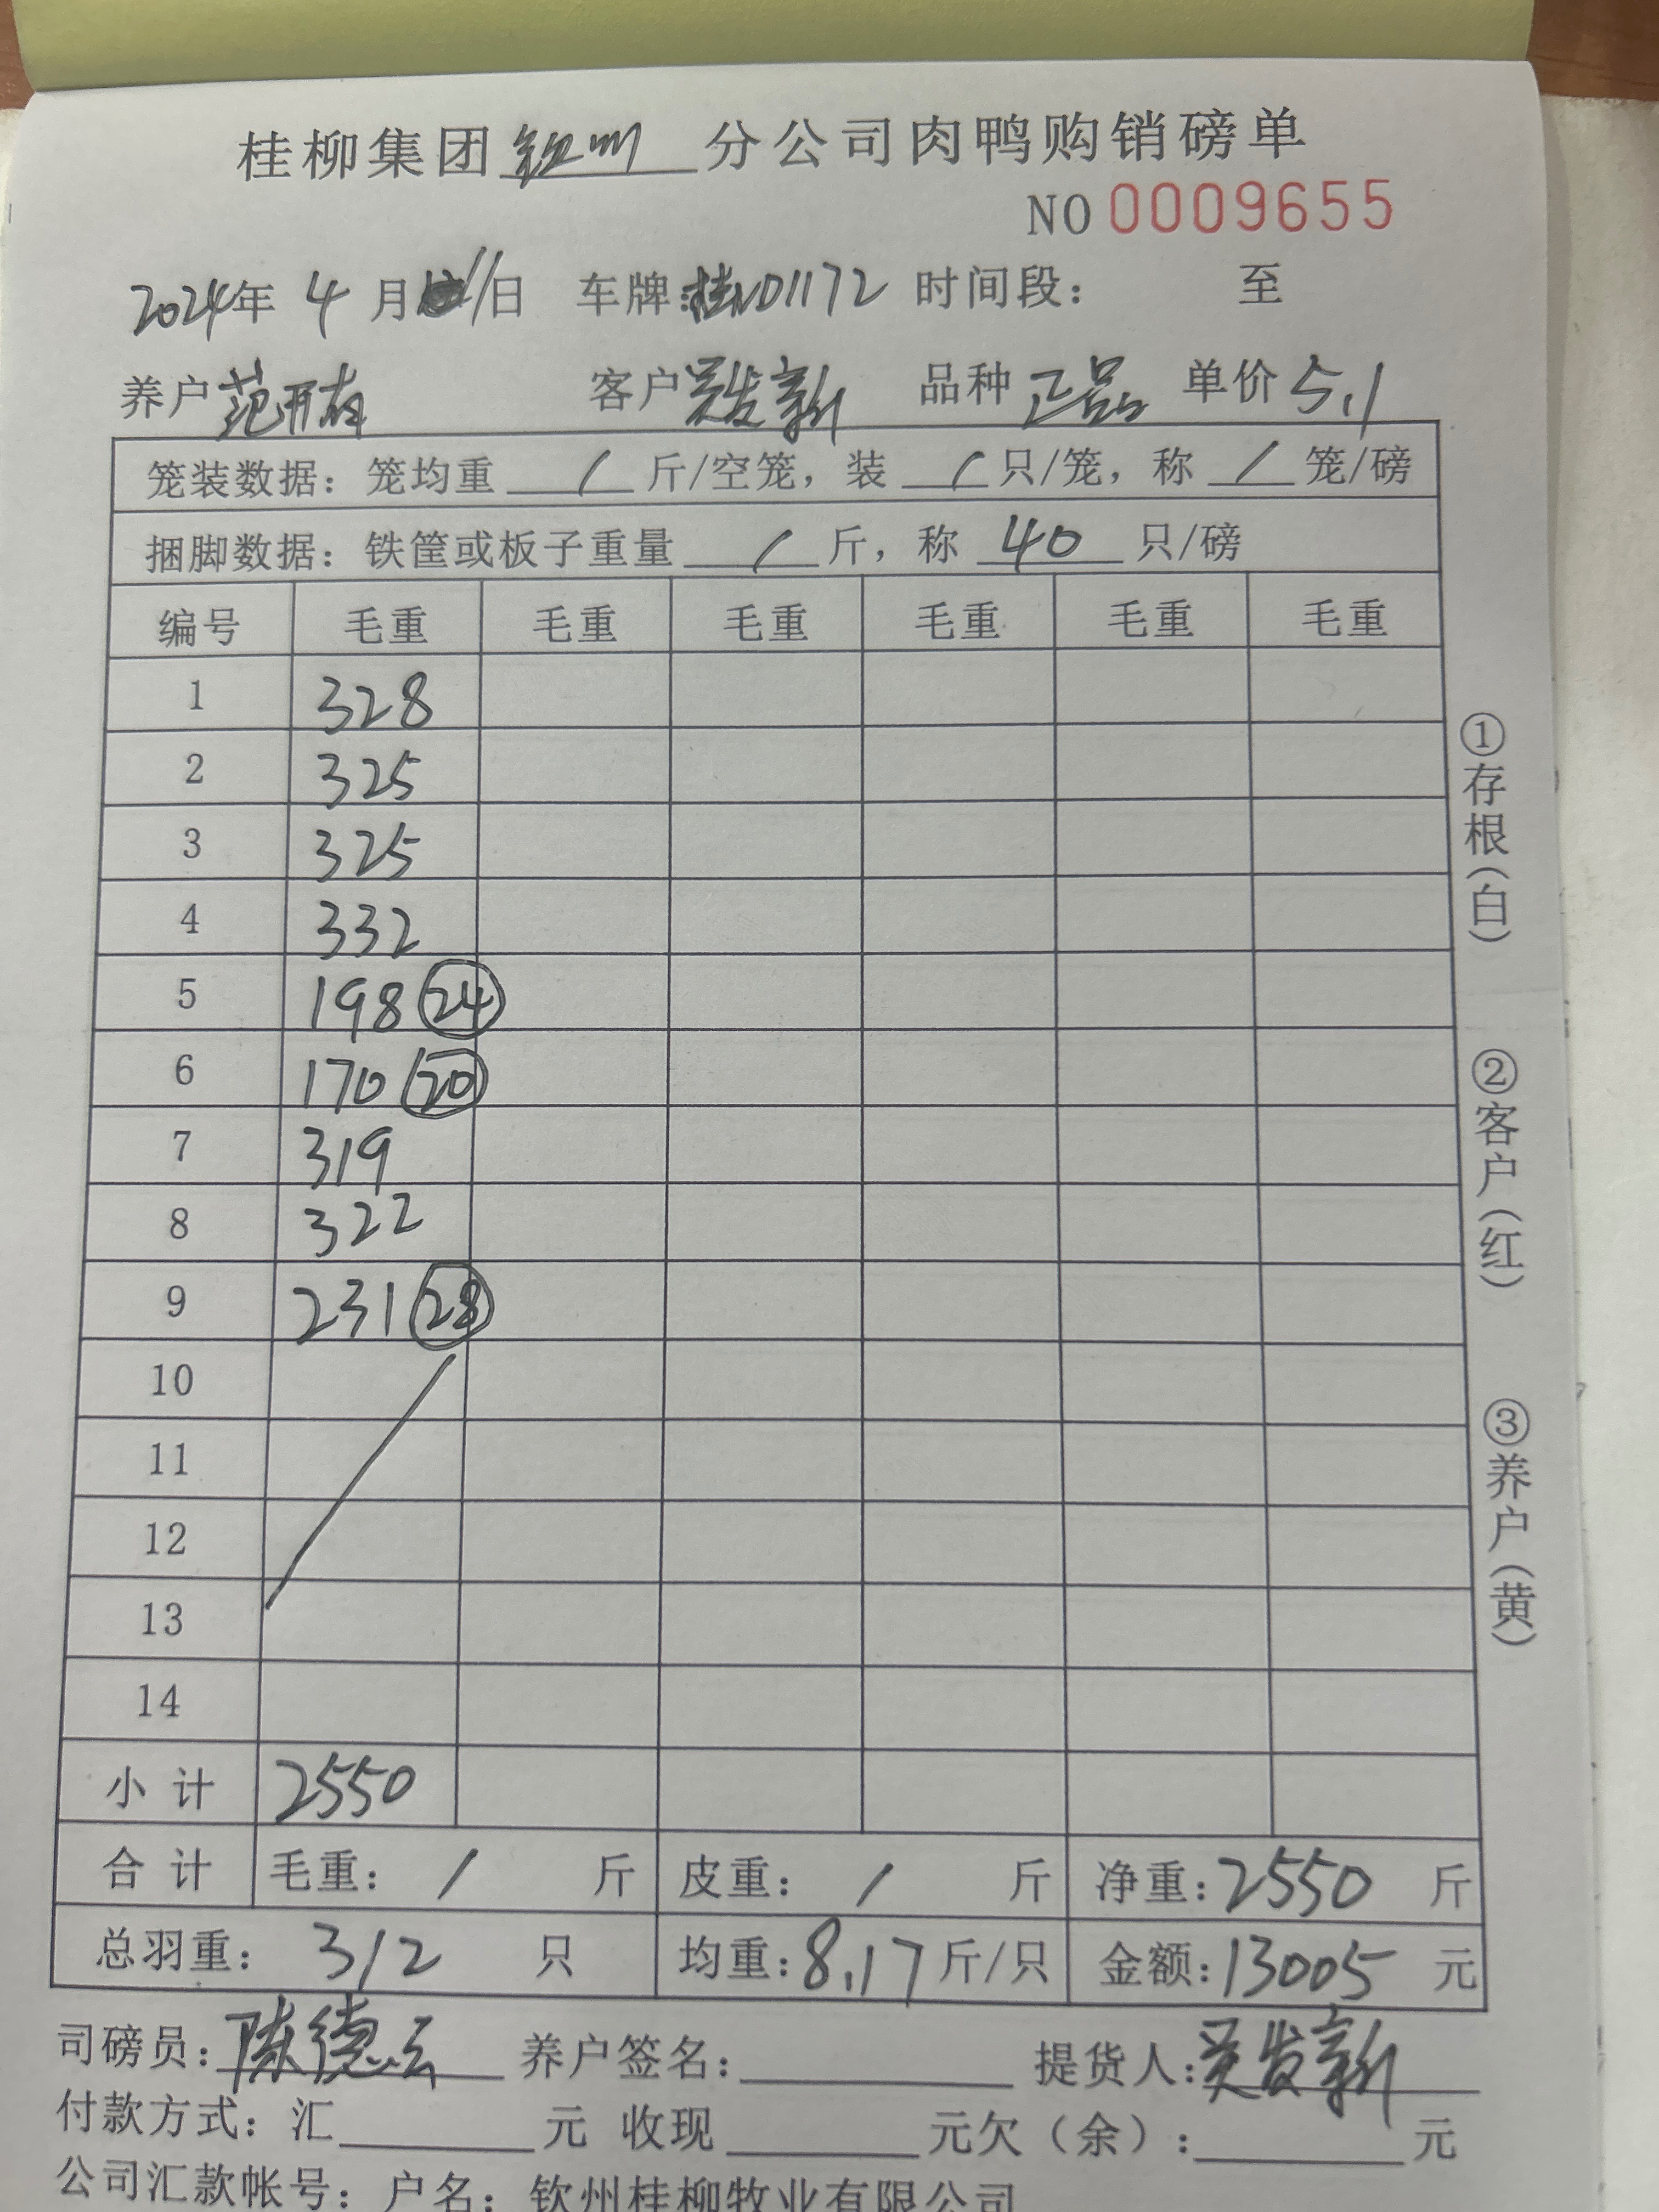 桂柳集团钦州分公司肉鸭购销磅单
NO 0009655
2024年 4 月 11日 车牌:桂ND1172 时间段: 至
养户 范开有 客户 吴发新 品种 正品 单价 5.1
笼装数据:笼均重 / 斤/空笼,装 / 只/笼,称 / 笼/磅
捆脚数据:铁筐或板子重量 / 斤,称 40 只/磅
编号 毛重 毛重 毛重 毛重 毛重 毛重
1 328
2 325
3 325
4 332
5 198 24
6 170 20
7 319
8 322
9 231 28
10
11
12
13
14
小计 2550
合计 毛重: / 斤 皮重: / 斤 净重:2550 斤
总羽重: 312 只 均重:8.17斤/只 金额:13005 元
司磅员:陈德云 养户签名: 提货人:吴发新
付款方式:汇 元 收现 元欠(余): 元
公司汇款帐号:户名:钦州桂柳牧业有限公司
①存根(白)
②客户(红)
③养户(黄)